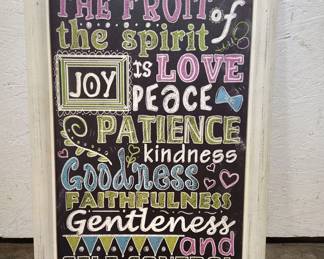 THE FRUIT of
the spirit
JOY IS LOVE
PEACE
PATIENCE
kindness
Goodness
FAITHFULNESS
Gentleness
and
SELF CONTROL